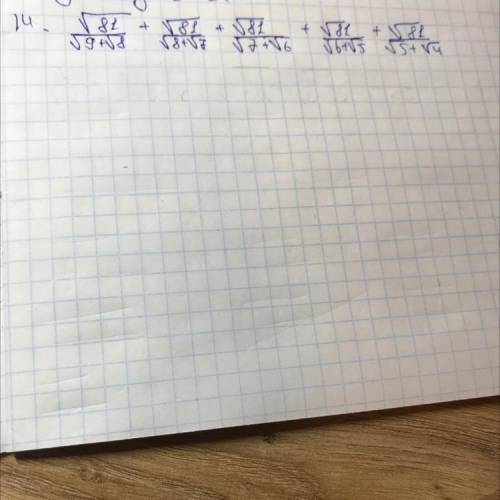 14. √81/√9+√8 + √81/√8+√7 + √81/√7+√6 + √81/√6+√5 + √81/√5+√4